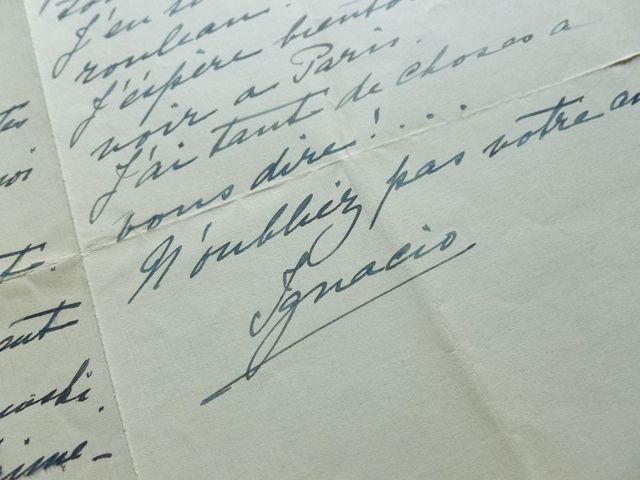 J'en
rouleau.
J'éspère bientôt
voir a Paris.
J'ai tant de choses a
vous dire!...
N'oubliez pas votre
Ignacio